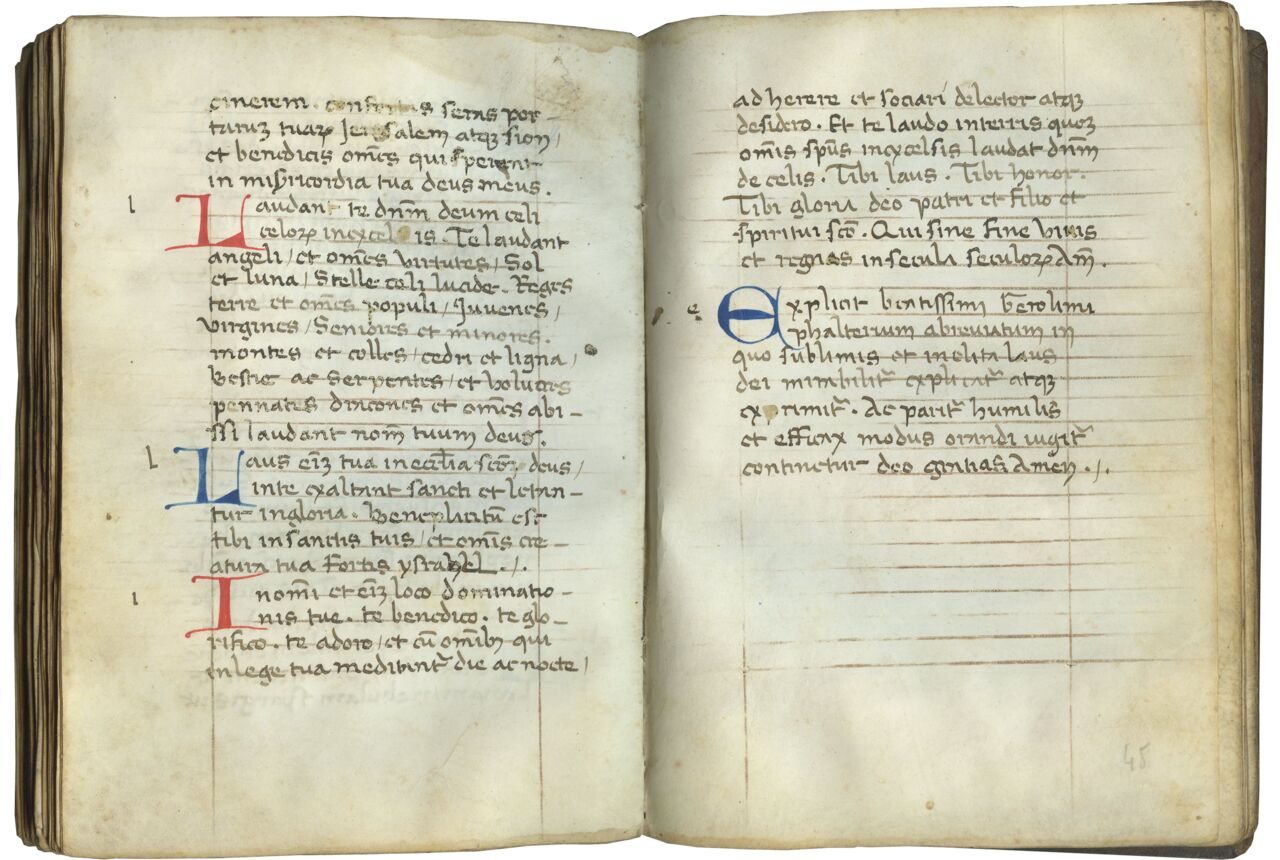 cinerem. confortas seras por
taruʒ tuaꝝ Jerusalem atqꝫ sion/
et benedicis om̄es qui sperant
in misiricordia tua deus meus.
l
Laudant te dn̄m deum celi
celoꝝ inexcelsis. Te laudant
angeli/et om̄es virtutes/Sol
et luna/Stelle celi lucide. Reges
terre et om̄es populi/Juvenes/
virgines/Seniores et minores.
montes et colles/cedri et ligna/
Bestie ac Serpentes/et volucres
pennates dracones et om̄es abi-
ssi laudant nom̄ tuum deus.
l
Laus eīʒ tua in eccl̄ia sc̄oꝝ deus/
inte exaltant sancti et letan-
tur ingloria. Beneplicitū est
tibi insanctis tuis/et om̄is cre-
atura tua Fortis ysrahel ./.
i
Inomī et eīʒ loco dominatio-
nis tue. te benedico. te glo-
rifico. te adoro/et cū omībꝫ qui
inlege tua meditant᷑ die ac nocte/
adherere et sociari delector atqꝫ
desidero. Et te laudo interris quoʒ
om̄is sp̄us inexcelsis laudat dn̄m
de celis. Tibi laus. Tibi honor.
Tibi gloria deo patri et filio et
spiritui sc̄o. Qui sine fine vivis
et regnas insecula seculoꝝ Am̄.
e
Explicit beatissimi Ieronimi
phalterium abreviatum in
quo sublimis et inclita laus
dei mirabilit᷑ explicat᷑ atqꝫ
exprimit᷑. Ac parit᷑ humilis
et efficax modus orandi iugit᷑
continetur deo gratias Amen ./.
45